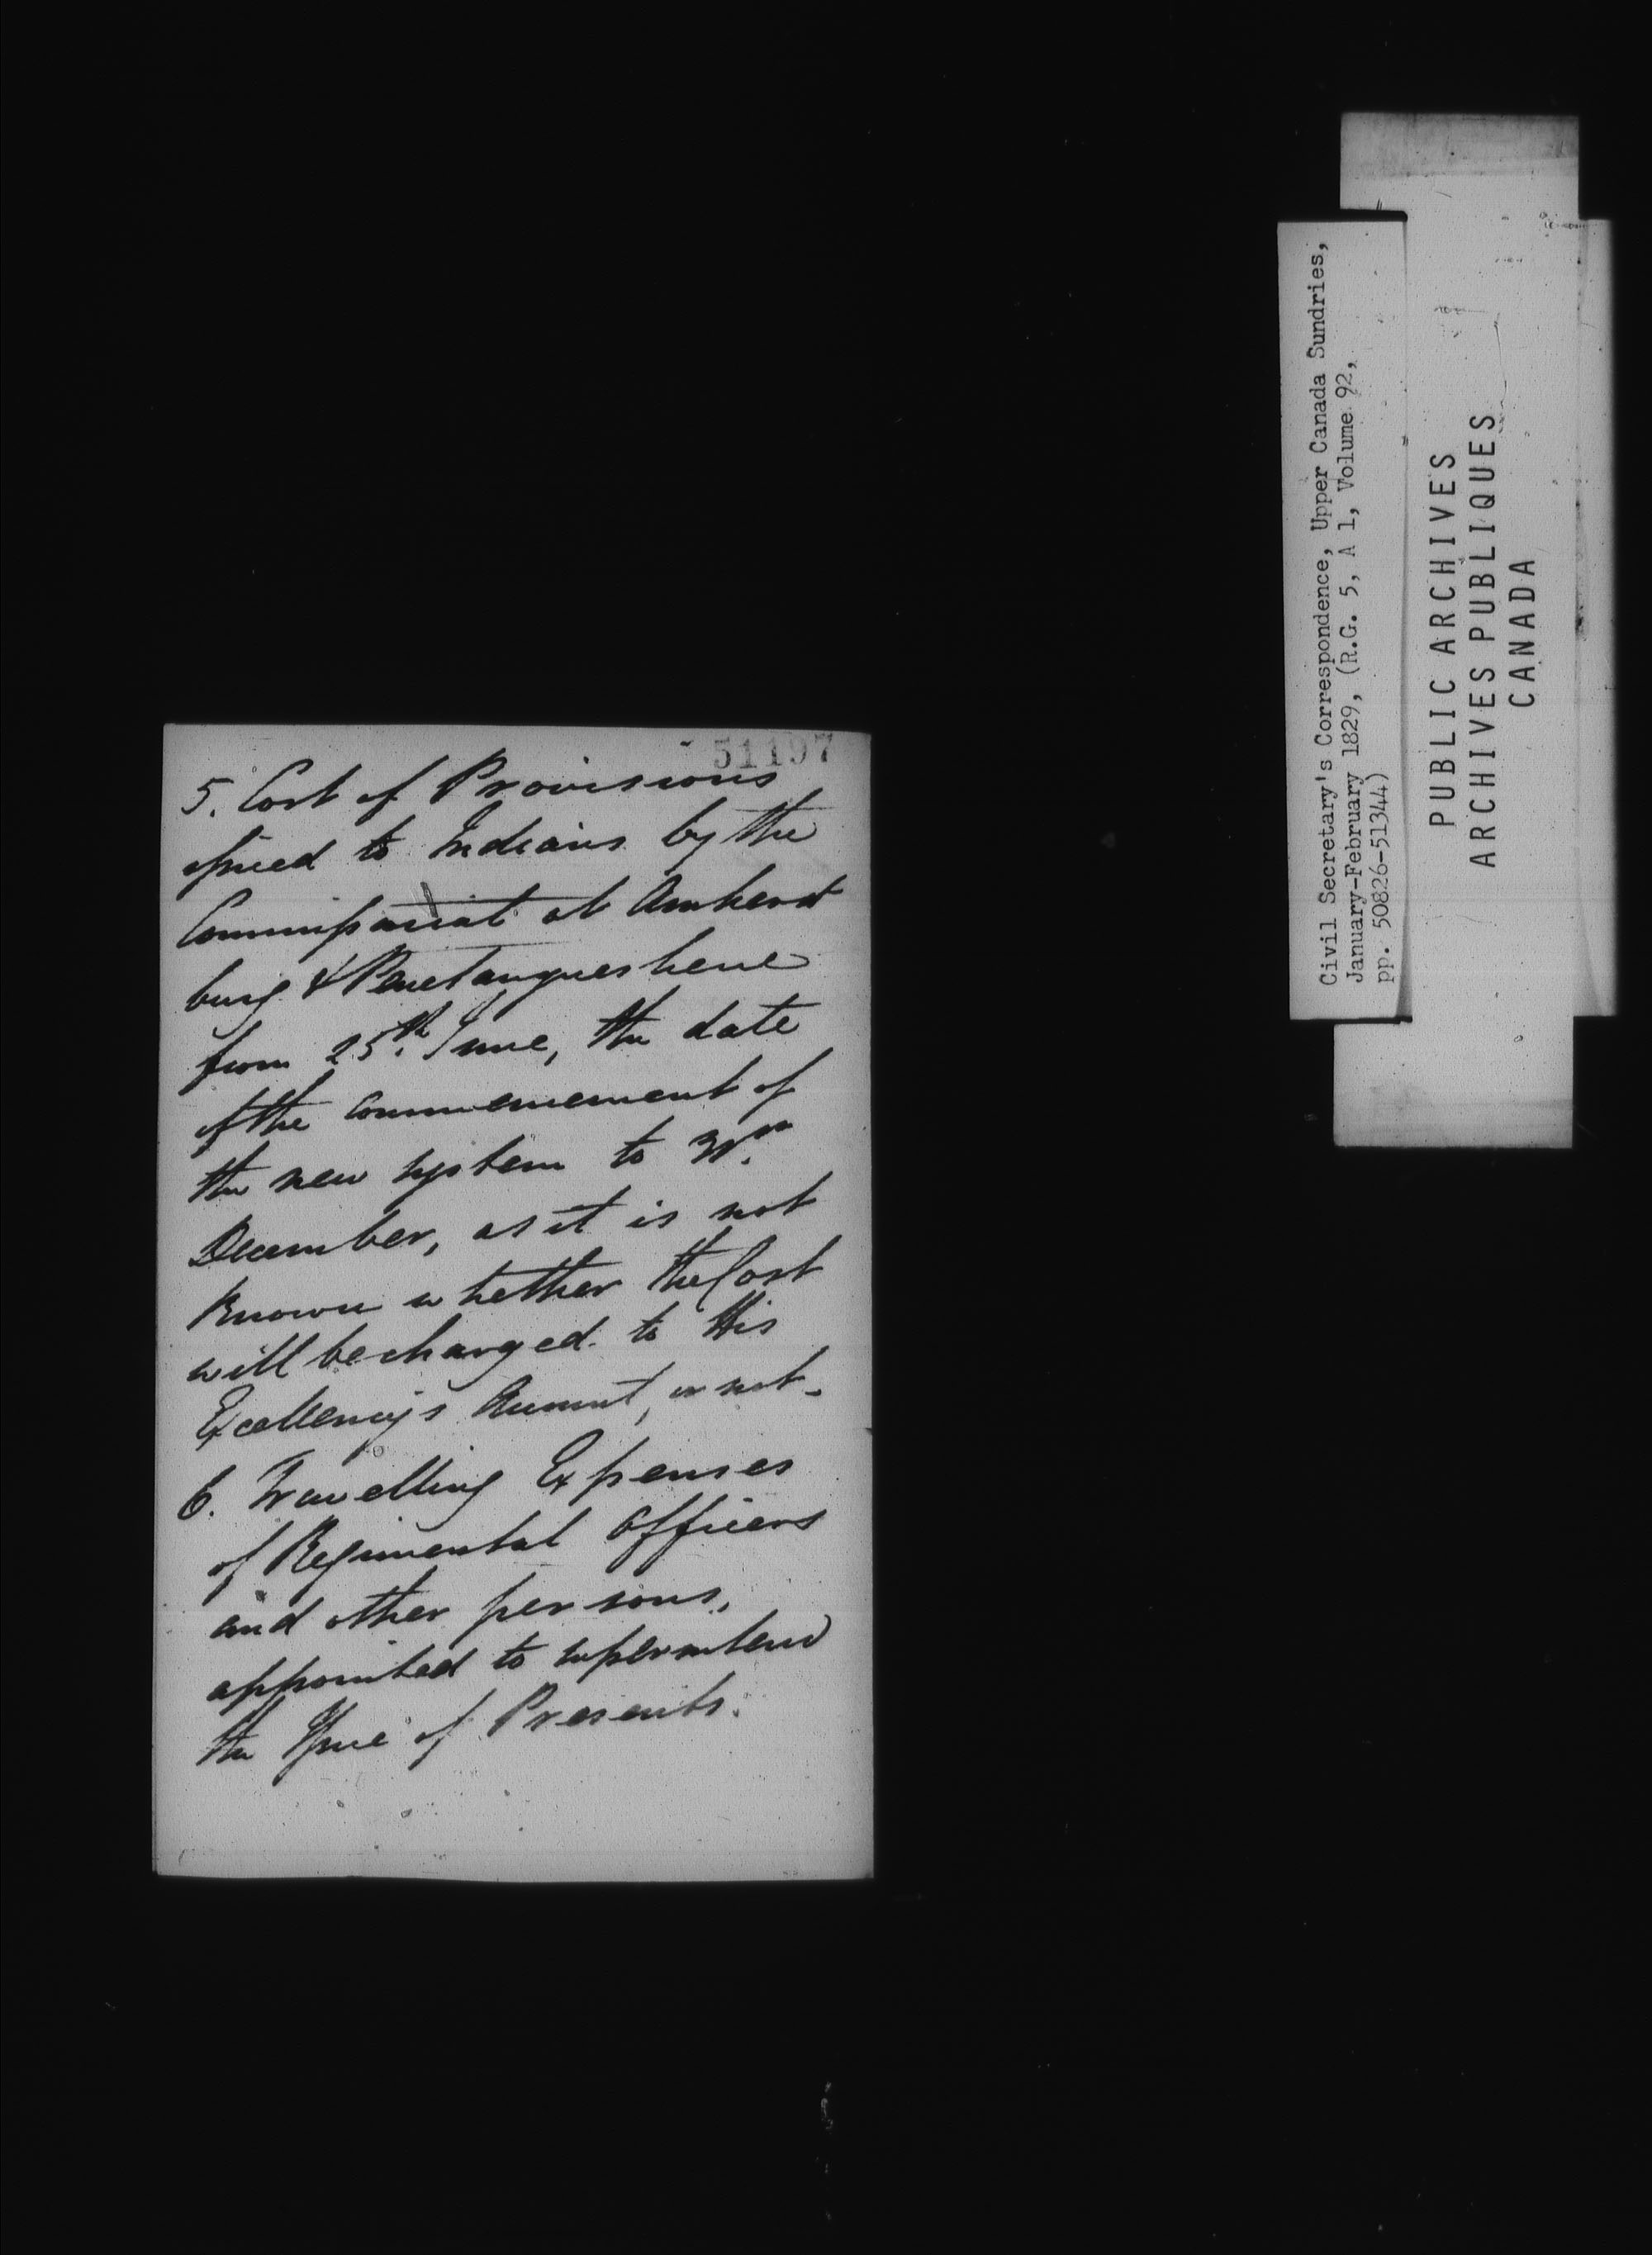 51197
5. Cost of Provisions
issued to Indians by the
Commissariat at Amherst
burg & Penetanguishene
from 25th June, the date
of the commencement of
the new system to 31st
December, as it is not
Known whether the Cost
will be charged to His
Excellency's Account, or not.
6. Travelling Expenses
of Regimental Officers
and other persons,
appointed to superintend
the Issue of Presents.
Civil Secretary's Correspondence, Upper Canada Sundries,
January-February 1829, (R.G. 5, A 1, Volume 92,
pp. 50826-51344)
PUBLIC ARCHIVES
ARCHIVES PUBLIQUES
CANADA